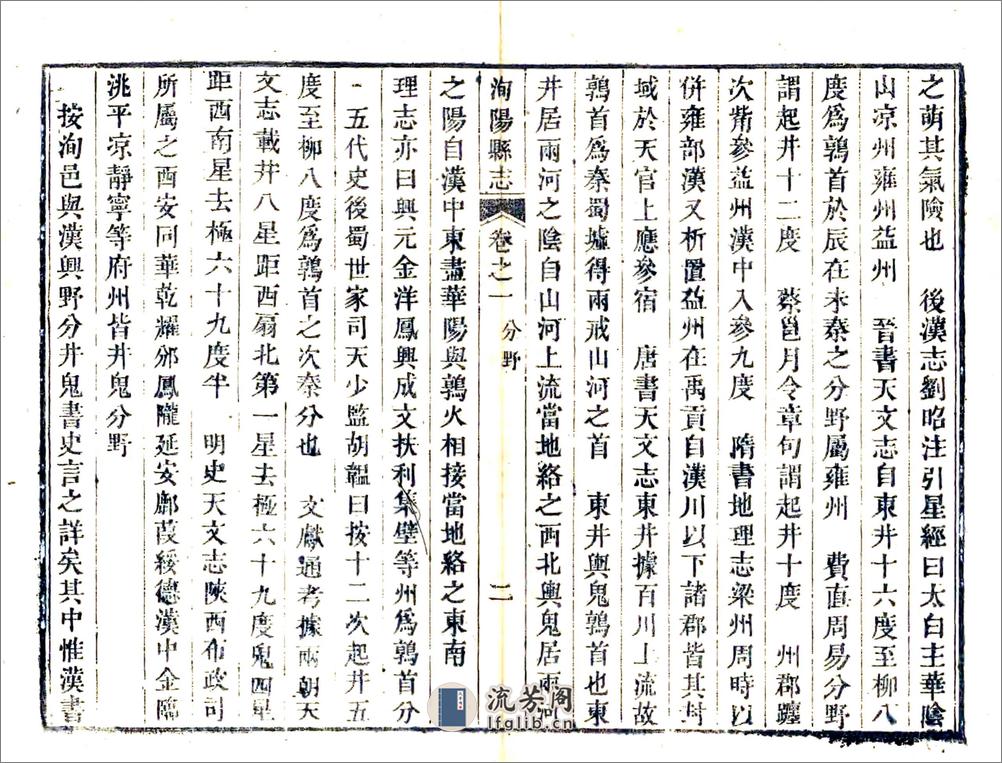 之萌其氣險也　後漢志劉昭注引星經曰太白主華陰
山凉州雍州益州　晉書天文志自東井十六度至柳八
度爲鶉首於辰在未秦之分野屬雍州　費直周易分野
謂起井十二度　蔡邕月令章句謂起井十度　州郡躔
次觜參益州漢中入參九度　隋書地理志梁州周時以
併雍部漢又析置益州在禹貢自漢川以下諸郡皆其封
域於天官上應參宿　唐書天文志東井據百川上流故
鶉首爲秦蜀墟得兩戒山河之首　東井輿鬼鶉首也東
井居兩河之陰自山河上流當地絡之西北輿鬼居兩河
洵陽縣志 卷之一 分野 二
之陽自漢中東盡華陽與鶉火相接當地絡之東南
理志亦曰興元金洋鳳興成文扶利集壁等州爲鶉首分
五代史後蜀世家司天少監胡韞曰按十二次起井五
度至柳八度爲鶉首之次秦分也　文獻通考據兩朝天
文志載井八星距西扇北第一星去極六十九度鬼四星
距西南星去極六十九度半　明史天文志陝西布政司
所屬之西安同華乾耀邠鳳隴延安鄜葭綏德漢中金臨
洮平凉靜寧等府州皆井鬼分野
按洵邑與漢興野分井鬼書史言之詳矣其中惟漢書
流芳閣
lfglib.cn